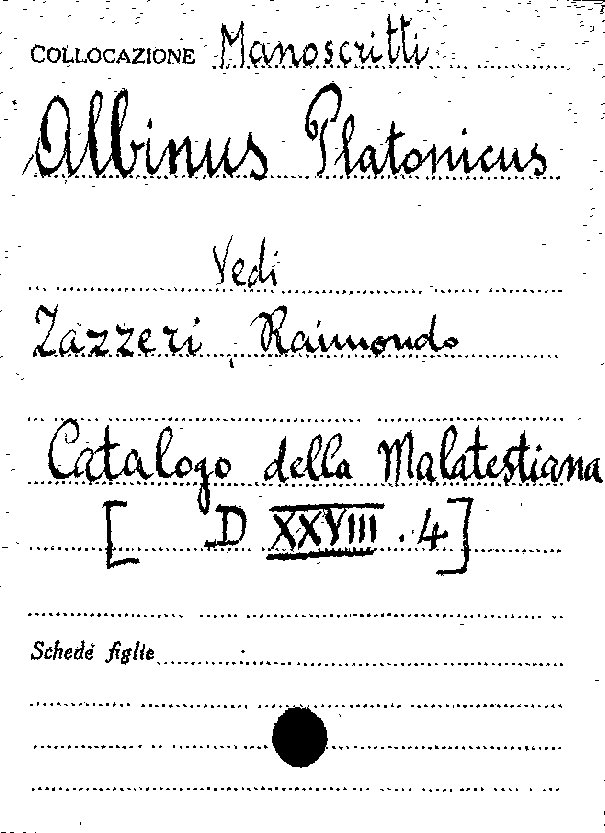 COLLOCAZIONE Manoscritti
Albinus Platonicus
Vedi
Zazzeri, Raimondo
Catalogo della Malatestiana
[ D XXVIII . 4]
Schede figlie